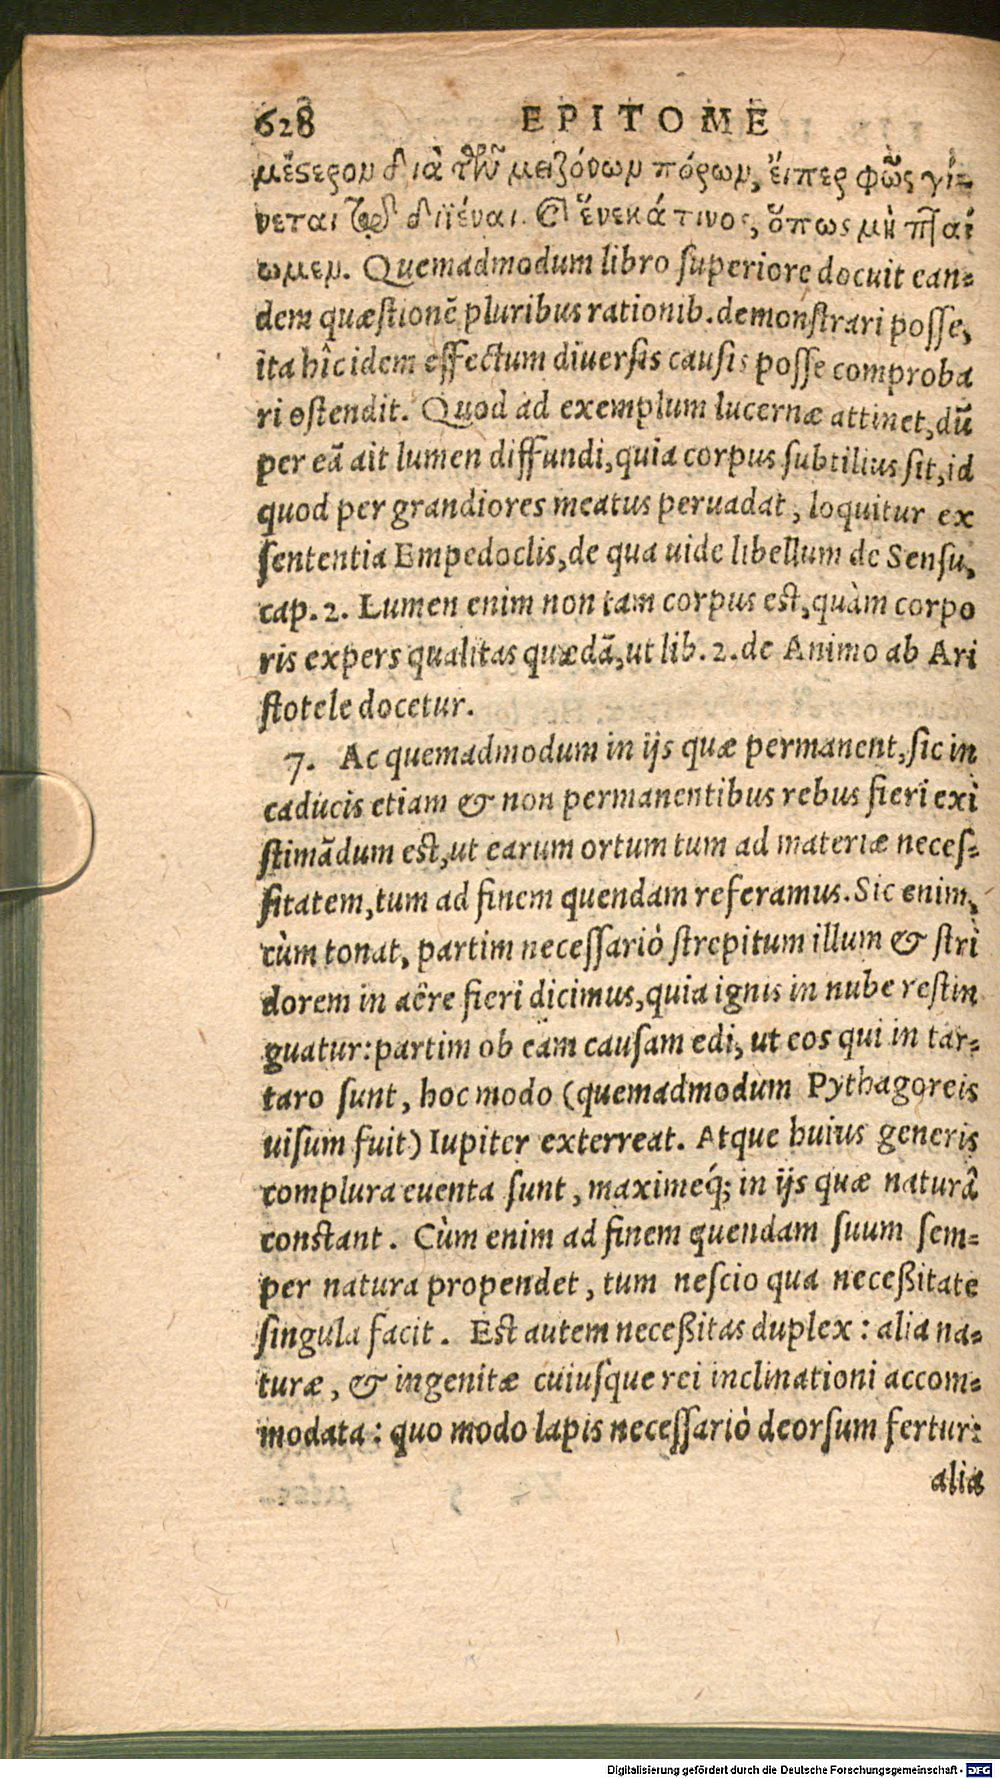 628 EPITOME
μέςερον διὰ τῶν μειζόνων πόρων, ἔιπερ φῶς γί-
νεται τῷ διϊέναι. καὶ ἕνεκά τινος, ὅπως μὴ πταί
ωμεν. Quemadmodum libro superiore docuit ean-
dem quæstionē pluribus rationib. demonstrari posse,
ita hîc idem effectum diuersis causis posse comproba
ri ostendit. Quod ad exemplum lucernæ attinet, dū
per eā ait lumen diffundi, quia corpus subtilius sit, id
quod per grandiores meatus peruadat, loquitur ex
sententia Empedoclis, de qua uide libellum de Sensu,
cap. 2. Lumen enim non tam corpus est, quàm corpo
ris expers qualitas quædā, ut lib. 2. de Animo ab Ari
stotele docetur.
7. Ac quemadmodum in ijs quæ permanent, sic in
caducis etiam & non permanentibus rebus fieri exi
stimādum est, ut earum ortum tum ad materiæ neces-
sitatem, tum ad finem quendam referamus. Sic enim,
cùm tonat, partim necessariò strepitum illum & stri
dorem in aëre fieri dicimus, quia ignis in nube restin
guatur: partim ob eam causam edi, ut eos qui in tar-
taro sunt, hoc modo (quemadmodum Pythagoreis
uisum fuit) Iupiter exterreat. Atque huius generis
complura euenta sunt, maximeq́; in ijs quæ naturâ
constant. Cùm enim ad finem quendam suum sem-
per natura propendet, tum nescio qua neceßitate
singula facit. Est autem neceßitas duplex: alia na-
turæ, & ingenitæ cuiusque rei inclinationi accom-
modata: quo modo lapis necessariò deorsum fertur:
alia
Digitalisierung gefördert durch die Deutsche Forschungsgemeinschaft - DFG